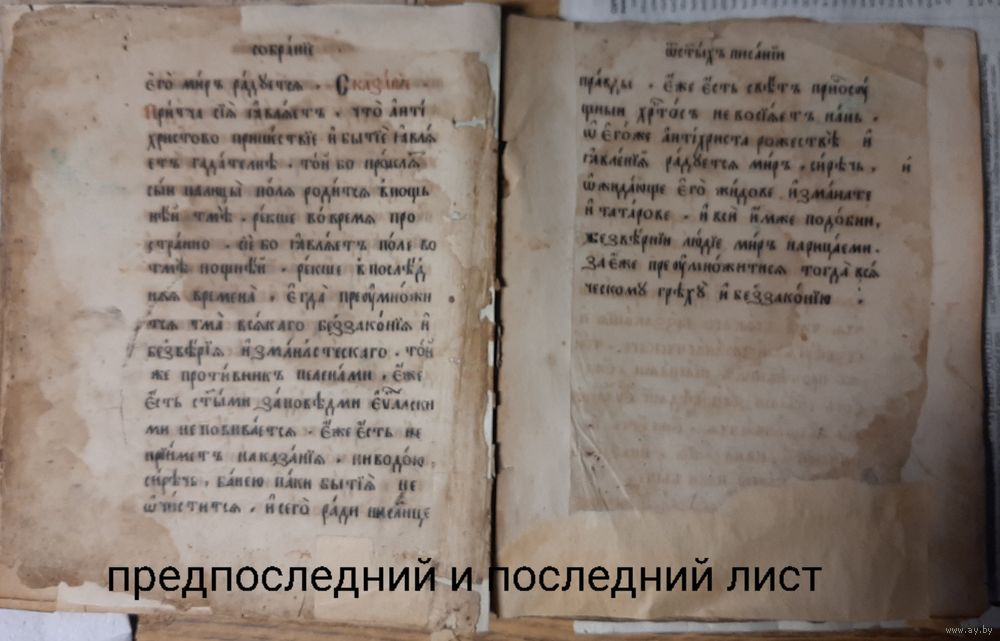 собра́нїе
є҆го̀ ми́ръ ра́дуется . Сказа́нїе .
При́тча сїѧ̀ ꙗ҆влѧ́етъ . что̀ а҆нті
христово прише́ствїе и҆ бытїѐ ꙗ҆влѧ́
етъ гада́телнѣ . то́й бо прокля́
сы́и
по́лѧ роди́тся в̾нощь
нѣ́й тмѣ̀ . ре́кше во вре́мѧ про
стра́нно . сѐ бо ꙗ҆влѧ́етъ по́ле во
тмѣ̀ нощнѣ́й . ре́кше в̾послѣ́д
нѧѧ времена̀ . є҆гда̀ преꙋ҆мно́жи
тся тма̀ всѧ́каго беззако́нїѧ и҆
безвѣ́рїѧ и҆зма́илтескаго . то́й
же проти́вникъ пелена́ми . є҆́же
є҆́сть ст҃ы́ми за́повѣдми є҆ѵⷢ҇лски
ми не повива́ется . є҆́же є҆́сть не
прїи́метъ наказа́нїѧ . ни водо́ю,
си́рѣчь . ба́нею па́ки бытїѧ̀ не
ѡ҆чи́стится . и҆ сегѡ̀ ра́ди
ѿ ст҃ы́хъ писа́нїи
пра́вды . є҆́же є҆́сть свѣ́тъ присносꙋ́
щный хрⷭ҇то́съ не восїѧ́етъ на́нь .
ѡ҆ є҆гѡ́же а҆нті́христа рожествѣ̀ и҆
ꙗ҆вле́нїѧ ра́дуется ми́ръ . си́рѣчь, и҆
ѡ҆жида́юще є҆го̀ жи́дове
и҆ тата́рове . и҆ всѝ и҆̀мже подо́бни,
безвѣ́рнїи лю́дїе ми́ръ нарица́еми .
за є҆́же преꙋ҆мно́житися тогда̀ всѧ́
ческому грѣхꙋ̀ и҆ беззако́нїю .
предпоследний и последний лист
www.ay.by